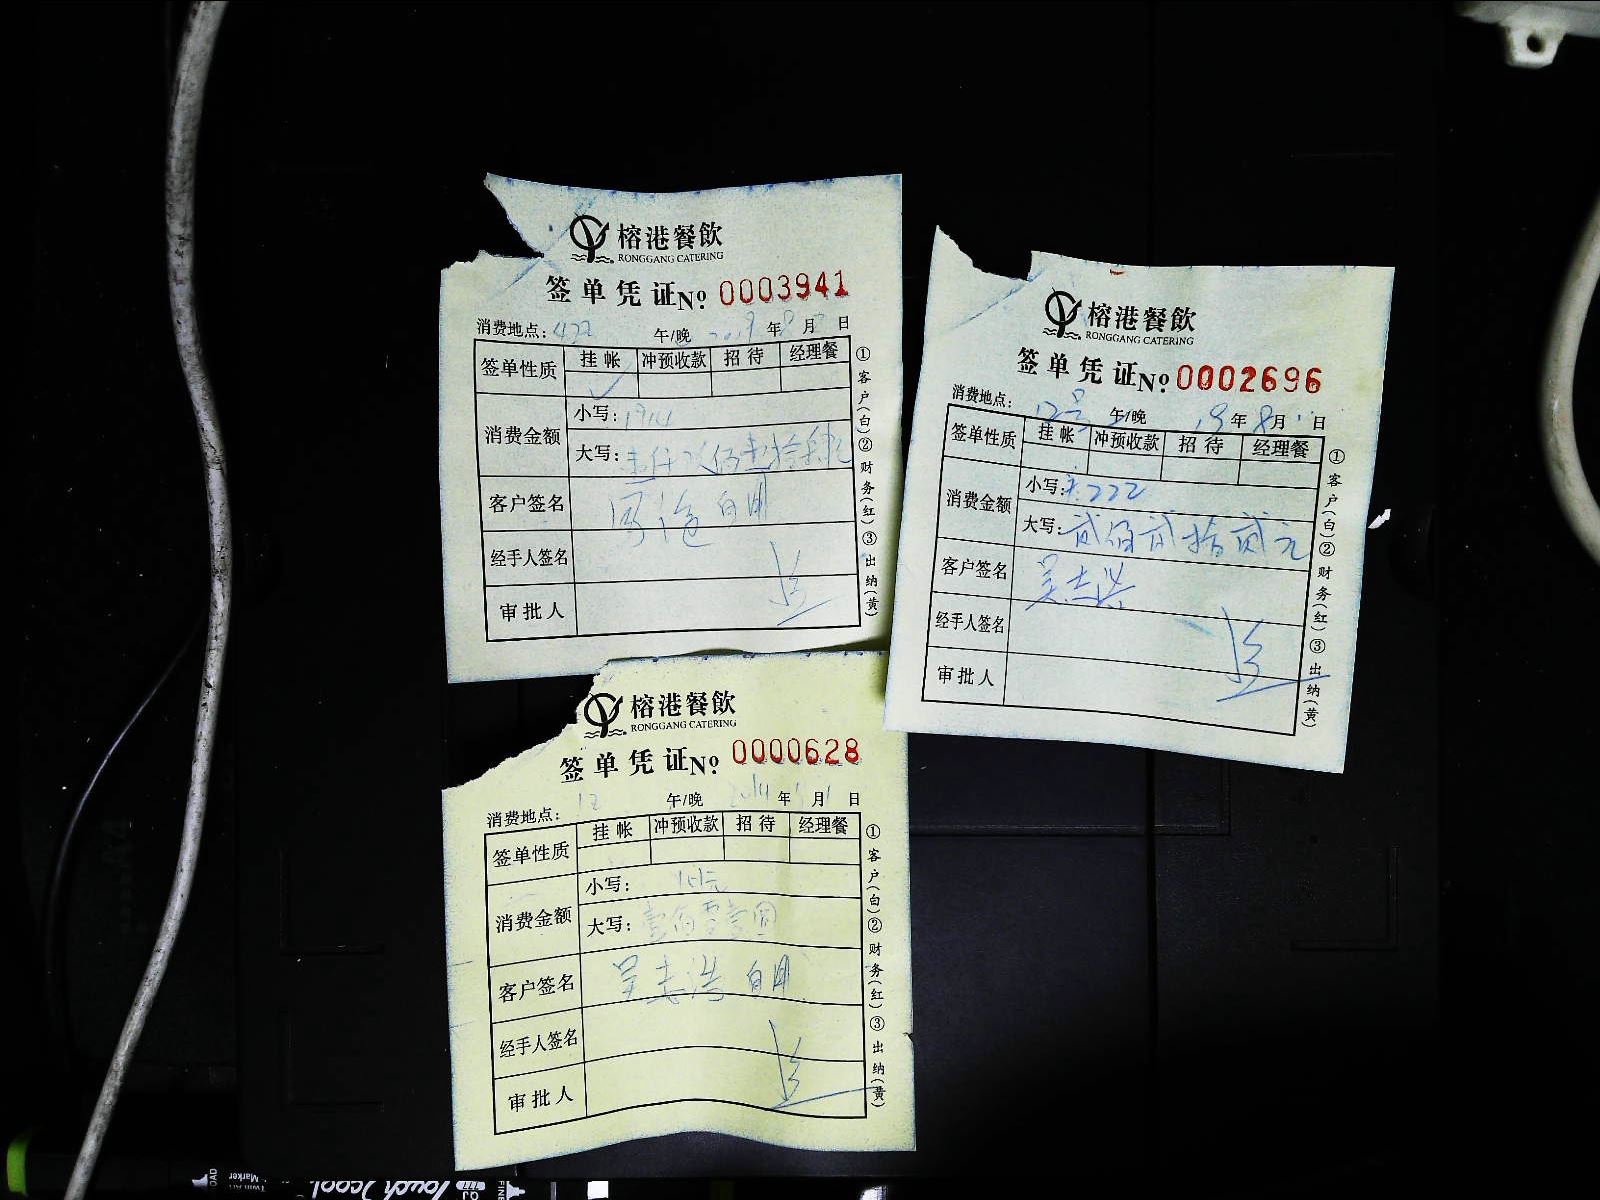 榕港餐飲
RONGGANG CATERING
签单凭证 No. 0003941
消费地点: 午/晚 2019年8月 日
签单性质 挂帐 冲预收款 招待 经理餐
消费金额
小写:
大写:
客户签名
经手人签名
审批人
①客户(白)②财务(红)③出纳(黄)
榕港餐飲
RONGGANG CATERING
签单凭证 No. 0002696
消费地点: 12号 午/晚 19年8月 日
签单性质 挂帐 冲预收款 招待 经理餐
消费金额
小写: ¥222
大写: 贰佰贰拾贰元
客户签名
经手人签名
审批人
①客户(白)②财务(红)③出纳(黄)
榕港餐飲
RONGGANG CATERING
签单凭证 No. 0000628
消费地点: 12 午/晚 年 月 日
签单性质 挂帐 冲预收款 招待 经理餐
消费金额
小写: 101元
大写: 壹佰零壹圆
客户签名 吴志浩
经手人签名
审批人
①客户(白)②财务(红)③出纳(黄)
Marker
Touch